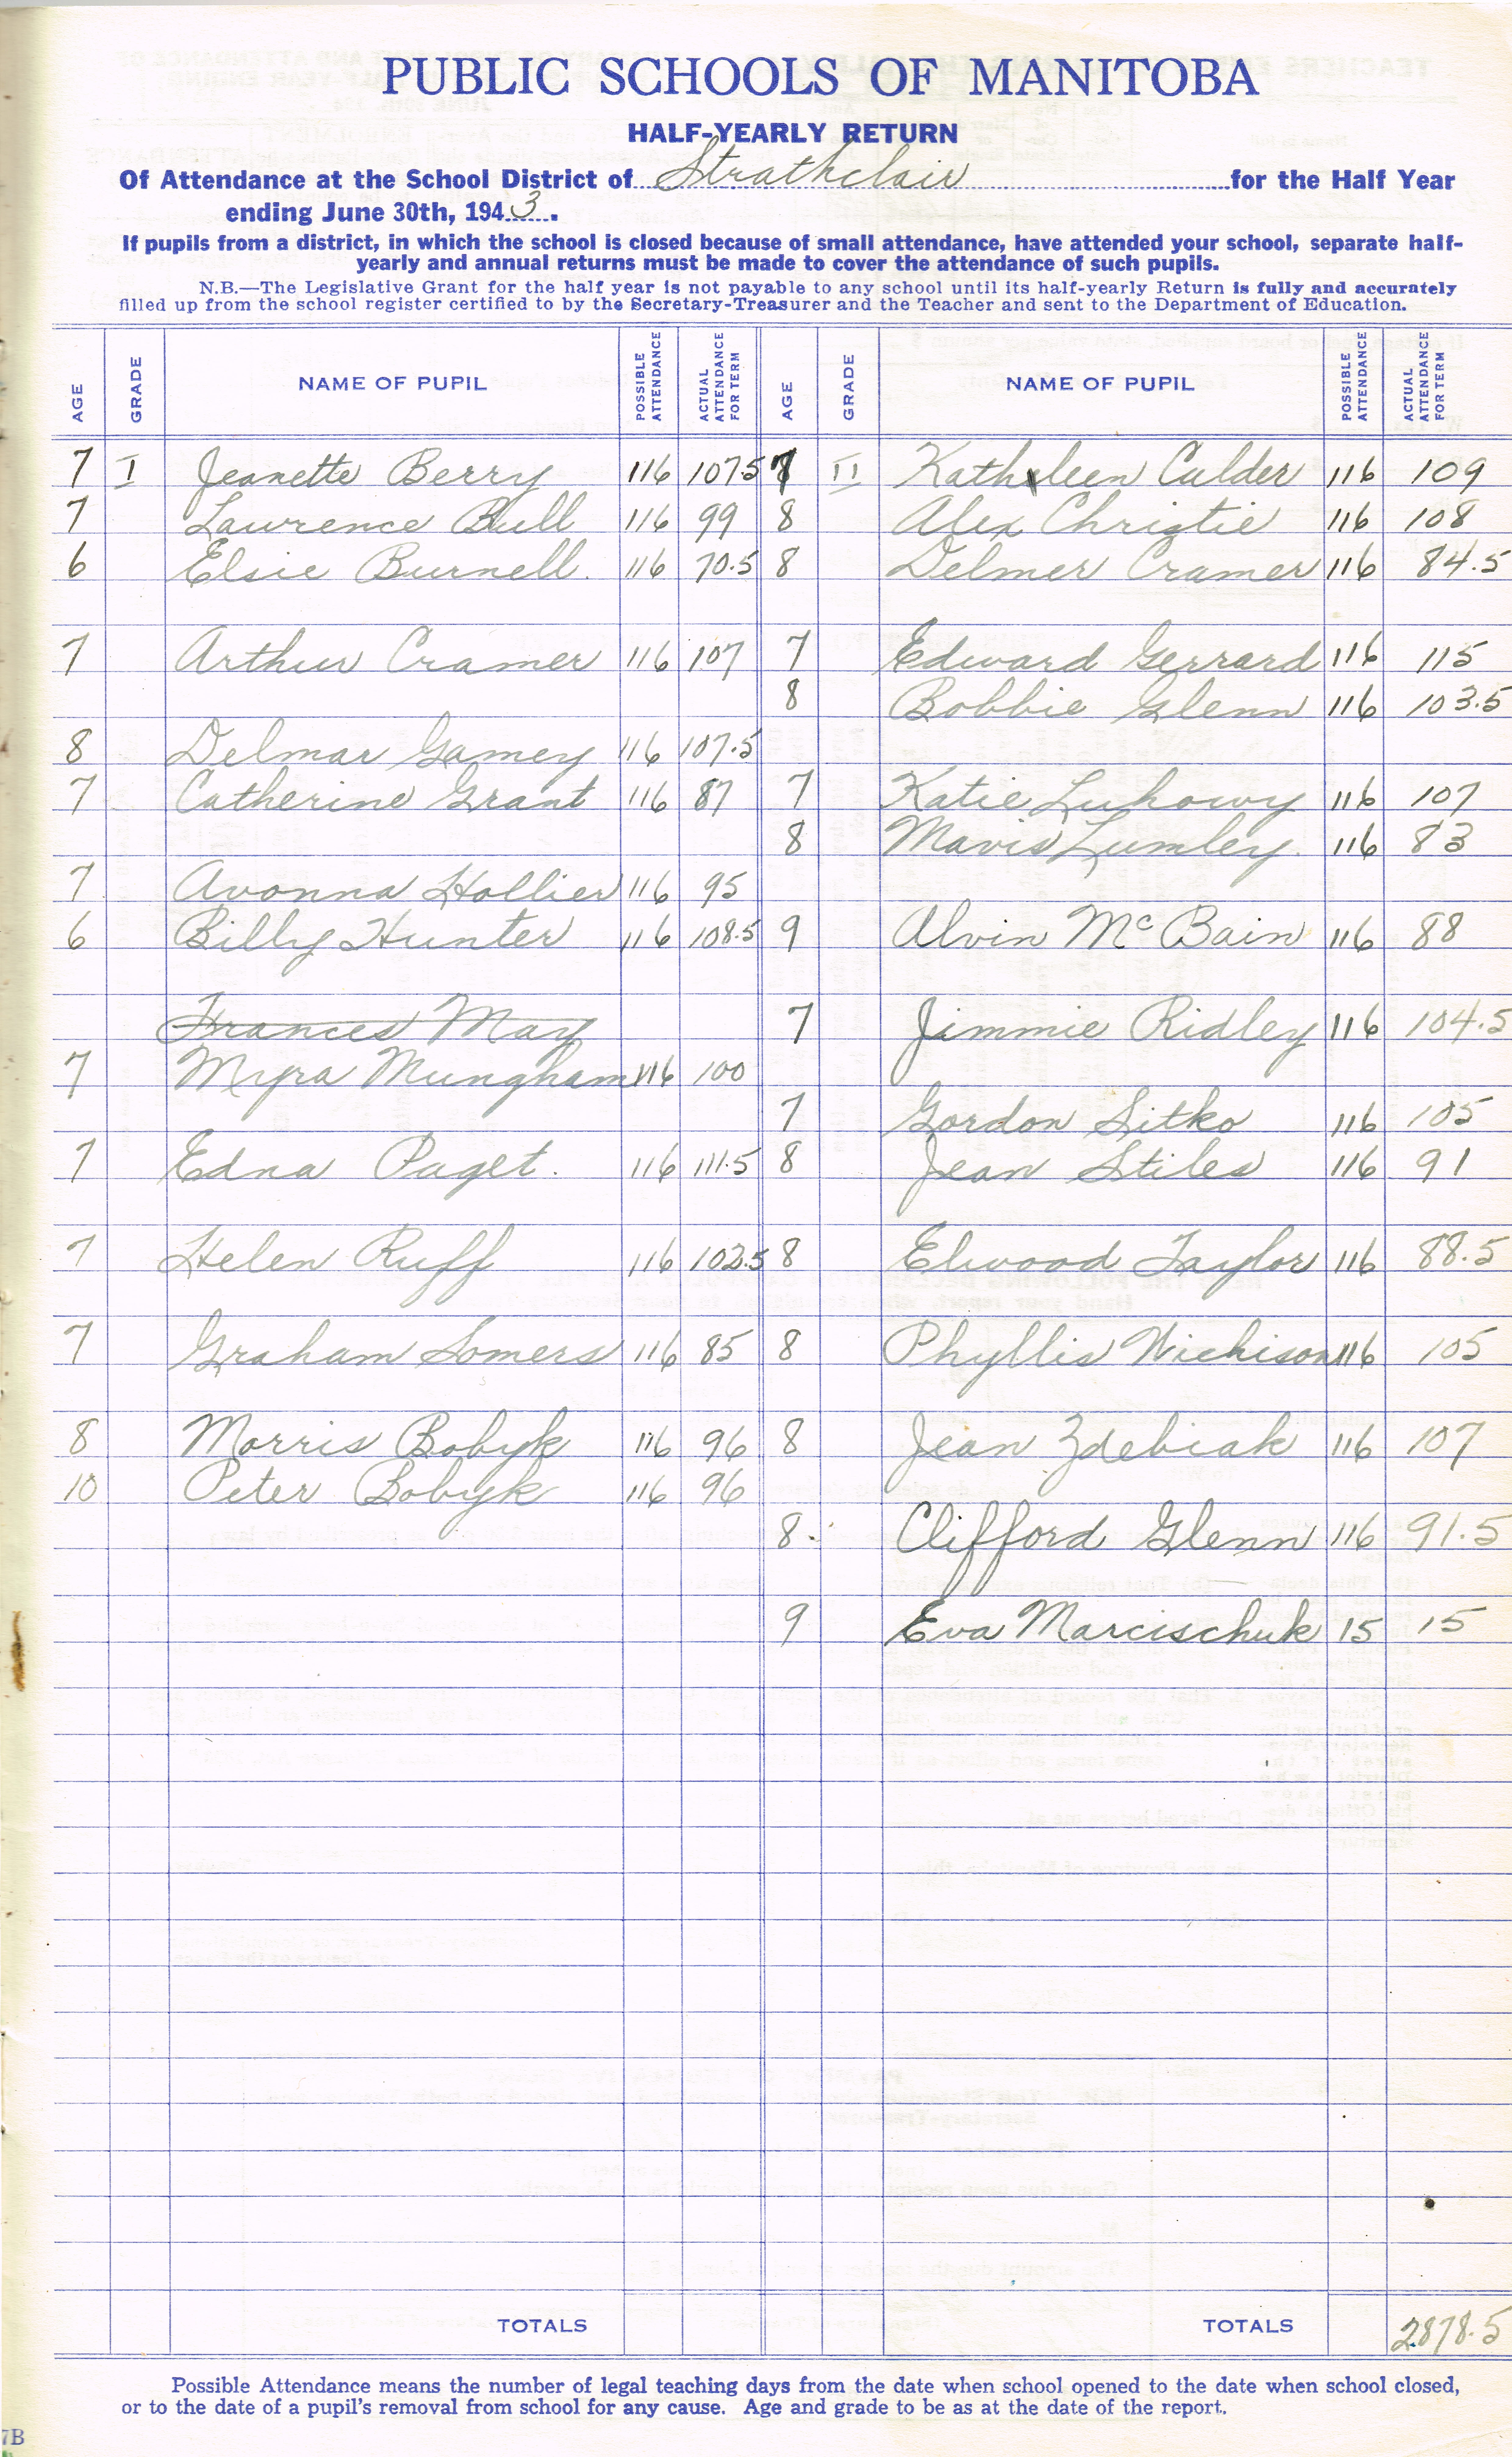 PUBLIC SCHOOLS OF MANITOBA
HALF-YEARLY RETURN
Of Attendance at the School District of Strathclair for the Half Year
ending June 30th, 1943.
If pupils from a district, in which the school is closed because of small attendance, have attended your school, separate half-
yearly and annual returns must be made to cover the attendance of such pupils.
N.B.—The Legislative Grant for the half year is not payable to any school until its half-yearly Return is fully and accurately
filled up from the school register certified to by the Secretary-Treasurer and the Teacher and sent to the Department of Education.
AGE GRADE NAME OF PUPIL POSSIBLE ATTENDANCE ACTUAL ATTENDANCE FOR TERM AGE GRADE NAME OF PUPIL POSSIBLE ATTENDANCE ACTUAL ATTENDANCE FOR TERM
7 I Jeanette Berry 116 107.5 II Kathleen Calder 116 109
7 Lawrence Bull 116 99 8 Alex Christie 116 108
6 Elsie Burnell. 116 70.5 8 Delmer Cramer 116 84.5
7 Arthur Cramer 116 107 7 Edward Gerrard 116 115
8 Bobbie Glenn 116 103.5
8 Delmar Gamey 116 107.5
7 Catherine Grant 116 87 7 Katie Luhowy 116 107
8 Mavis Lumley. 116 83
7 Avonna Hollier 116 95
6 Billy Hunter 116 108.5 9 Alvin McBain 116 88
Frances May 7 Jimmie Ridley 116 104.5
7 Myra Mungham 116 100
7 Gordon Sitko 116 105
7 Edna Paget. 116 111.5 8 Jean Stiles 116 91
7 Helen Ruff 116 102.5 8 Elwood Taylor 116 88.5
7 Graham Somers 116 85 8 Phyllis Wichison 116 105
8 Morris Bobyk 116 96 8 Jean Zdebiak 116 107
10 Peter Bobyk 116 96
8. Clifford Glenn 116 91.5
9 Eva Marcischuk 15 15
TOTALS TOTALS 2878.5
Possible Attendance means the number of legal teaching days from the date when school opened to the date when school closed,
or to the date of a pupil's removal from school for any cause. Age and grade to be as at the date of the report.
7B